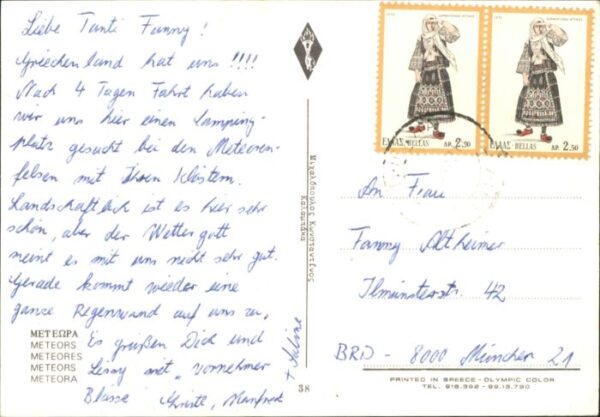 Liebe Tanti Fanny!
Griechenland hat uns !!!!
Nach 4 Tagen Fahrt haben
wir uns hier einen Camping-
platz gesucht bei den Meteoren-
felsen mit ihren Klöstern.
Landschaftlich ist es hier sehr
schön, aber der Wettergott
meint es mit uns nicht sehr gut.
Gerade kommt wieder eine
ganze Regenwand auf uns zu.
Es grüßen Dich und
Lissy mit "vornehmer
Blässe" Christl, Manfred
+ Sabine
ΜΕΤΕΩΡΑ
METEORS
METEORES
METEORS
METEORA
38
Μιχαλόπουλος Κωνσταντίνος
Καλαμπάκα
ΕΛΛΑΣ-HELLAS
ΔΡ. 2.50
ΕΛΛΑΣ-HELLAS
ΔΡ. 2.50
An Frau
Fanny Altheimer
Ilmünsterstr. 42
BRD - 8000 München 21
PRINTED IN GREECE - OLYMPIC COLOR
TEL. 918.392 - 99.13.790